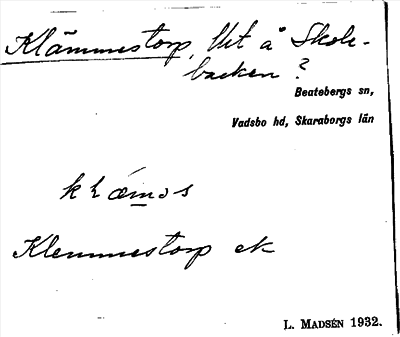 Klämmestorp, Ut å Skole-
backen?
Beatebergs sn,
Vadsbo hd, Skaraborgs län
Klemmestorp ek
L. MADSÉN 1932.